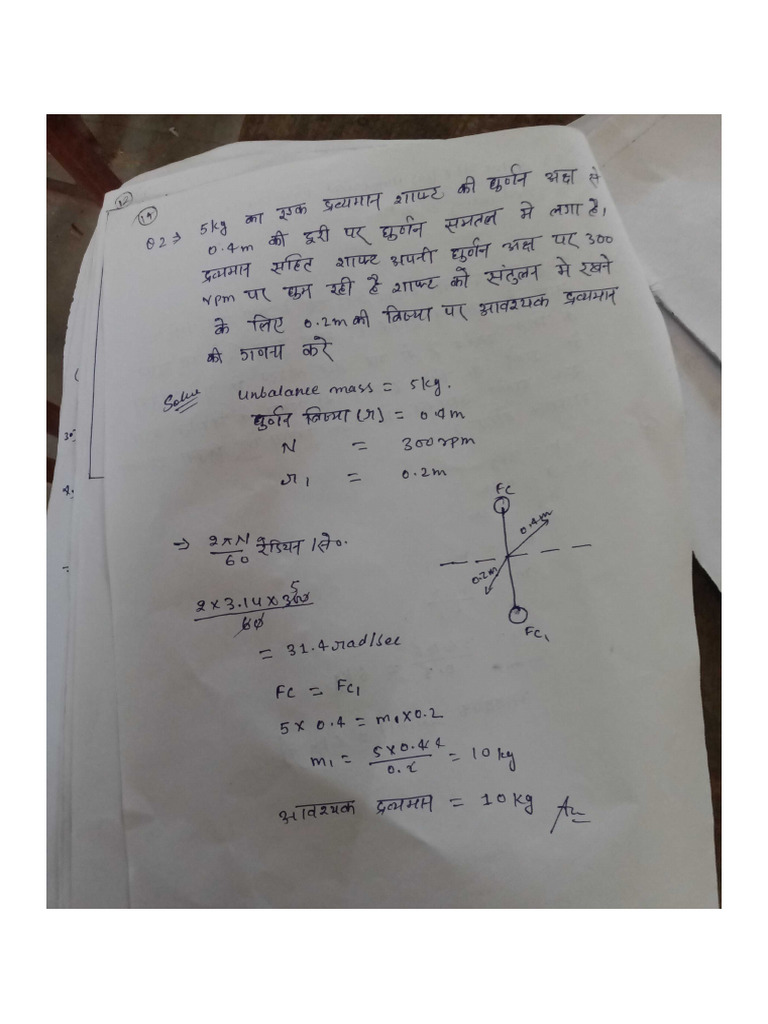 14
Q2⇒ 5kg का इएक द्रव्यमान शाफ्ट की घुर्णन अक्ष से
0.4m की दूरी पर घुर्णन समतल मे लगा है,
द्रव्यमान सहित शाफ्ट अपनी घुर्णन अक्ष पर 300
rpm पर घुम रही है शाफ्ट को संतुलन मे रखने
के लिए 0.2m की त्रिज्या पर आवश्यक द्रव्यमान
की गणना करे
Solve unbalance mass = 5kg.
घुर्णन त्रिज्या (r) = 0.4m
N = 300rpm
r1 = 0.2m
FC
0.4m
0.2m
FC1
→ 2πN/60 रेडियन/से०.
2×3.14×300/60 5
= 31.4rad/sec
FC = FC1
5×0.4 = m1×0.2
m1 = 5×0.4/0.2 = 10kg
आवश्यक द्रव्यमान = 10kg Ans